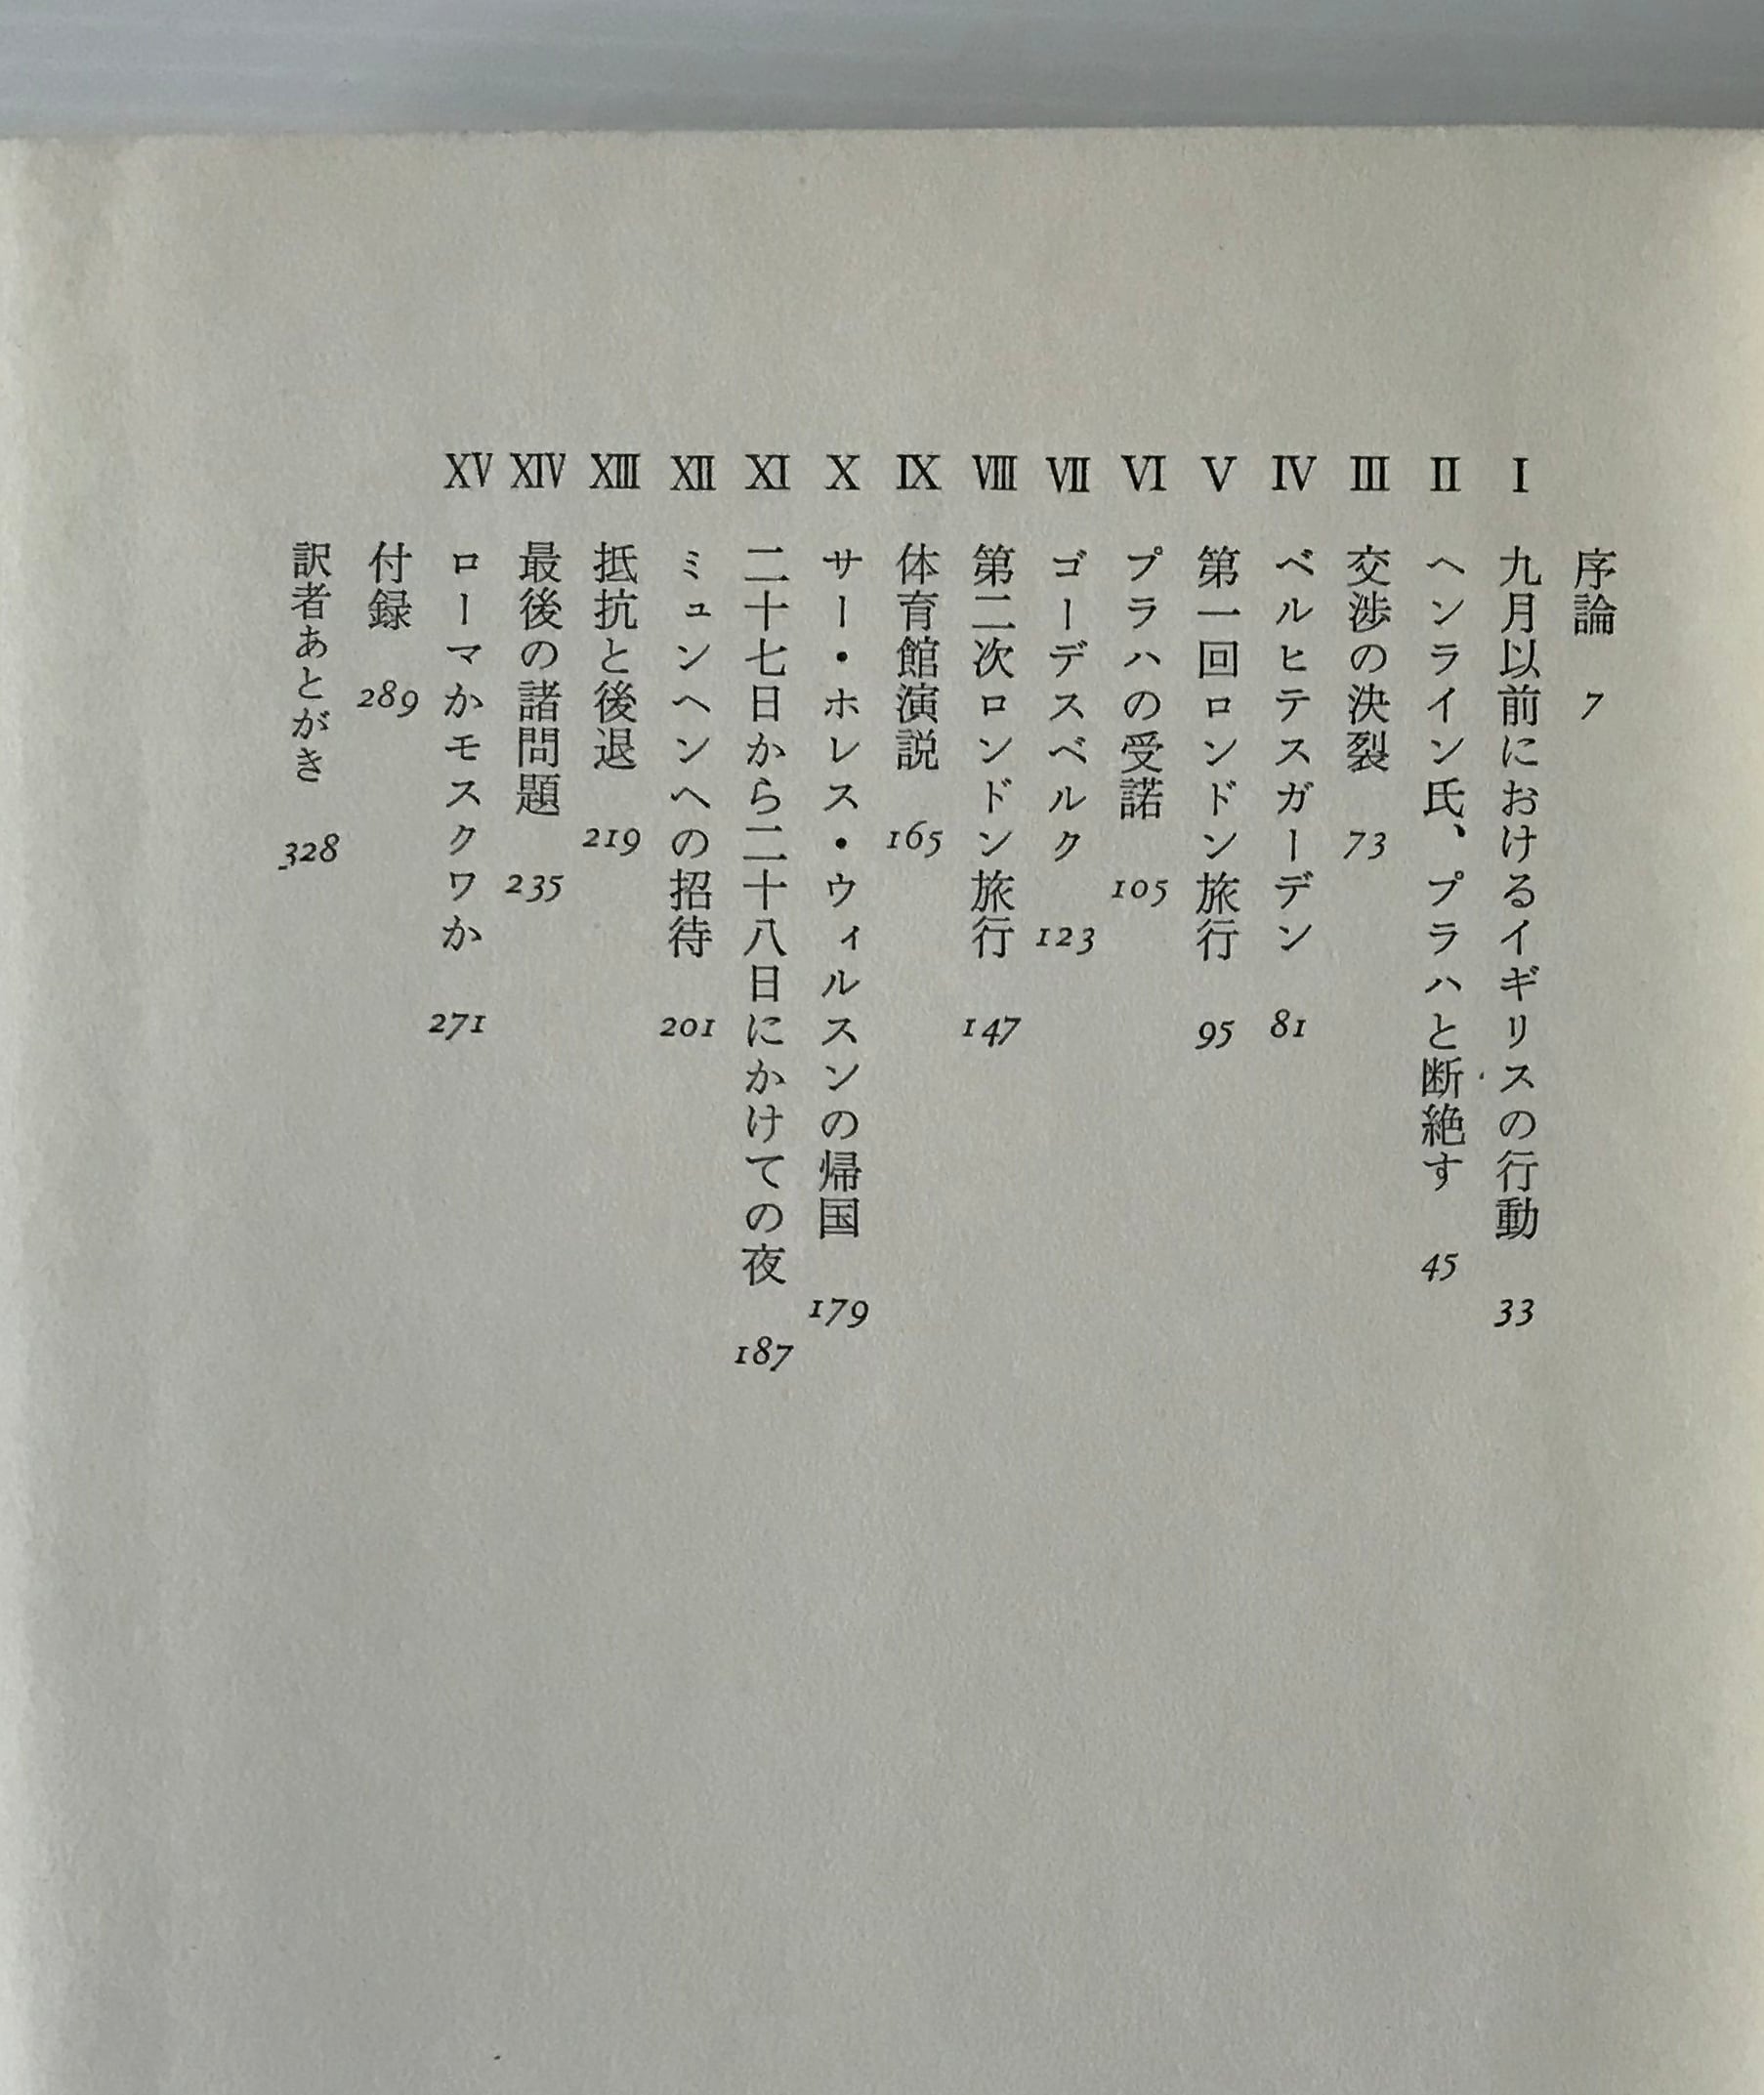 序論 7
I 九月以前におけるイギリスの行動 33
II ヘンライン氏、プラハと断絶す 45
III 交渉の決裂 73
IV ベルヒテスガーデン 81
V 第一回ロンドン旅行 95
VI プラハの受諾 105
VII ゴーデスベルク 123
VIII 第二次ロンドン旅行 147
IX 体育館演説 165
X サー・ホレス・ウィルスンの帰国 179
XI 二十七日から二十八日にかけての夜 187
XII ミュンヘンへの招待 201
XIII 抵抗と後退 219
XIV 最後の諸問題 235
XV ローマかモスクワか 271
付録 289
訳者あとがき 328